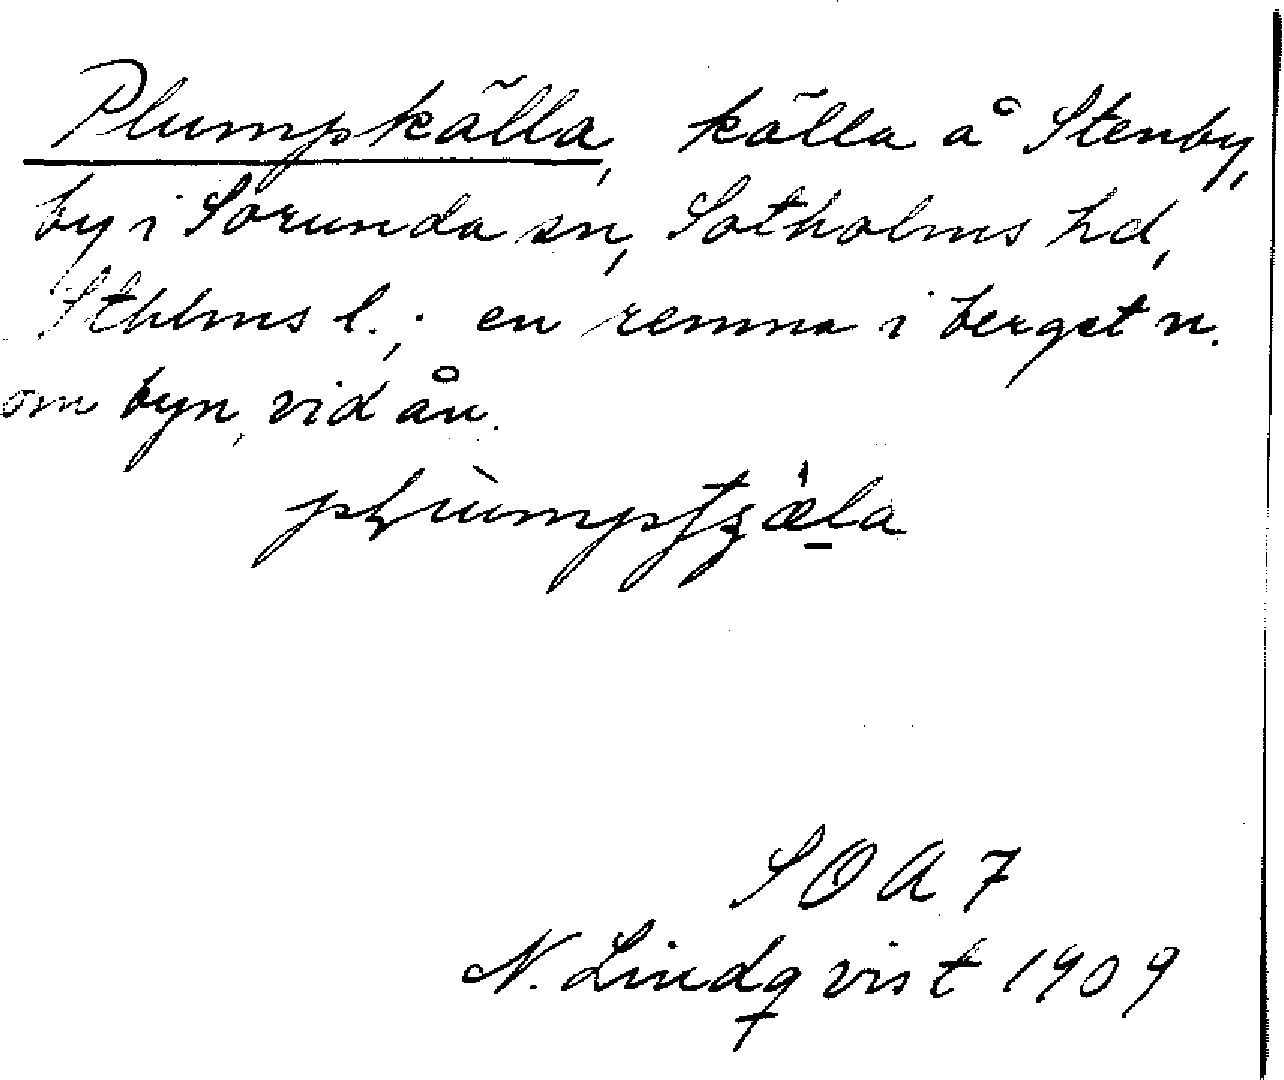 Plumpkälla, källa å Stenby,
by i Sorunda sn, Sotholms hd,
Sthlms l.; en remna i berget n.
om byn, vid ån.
SOA 7
N. Lindqvist 1909